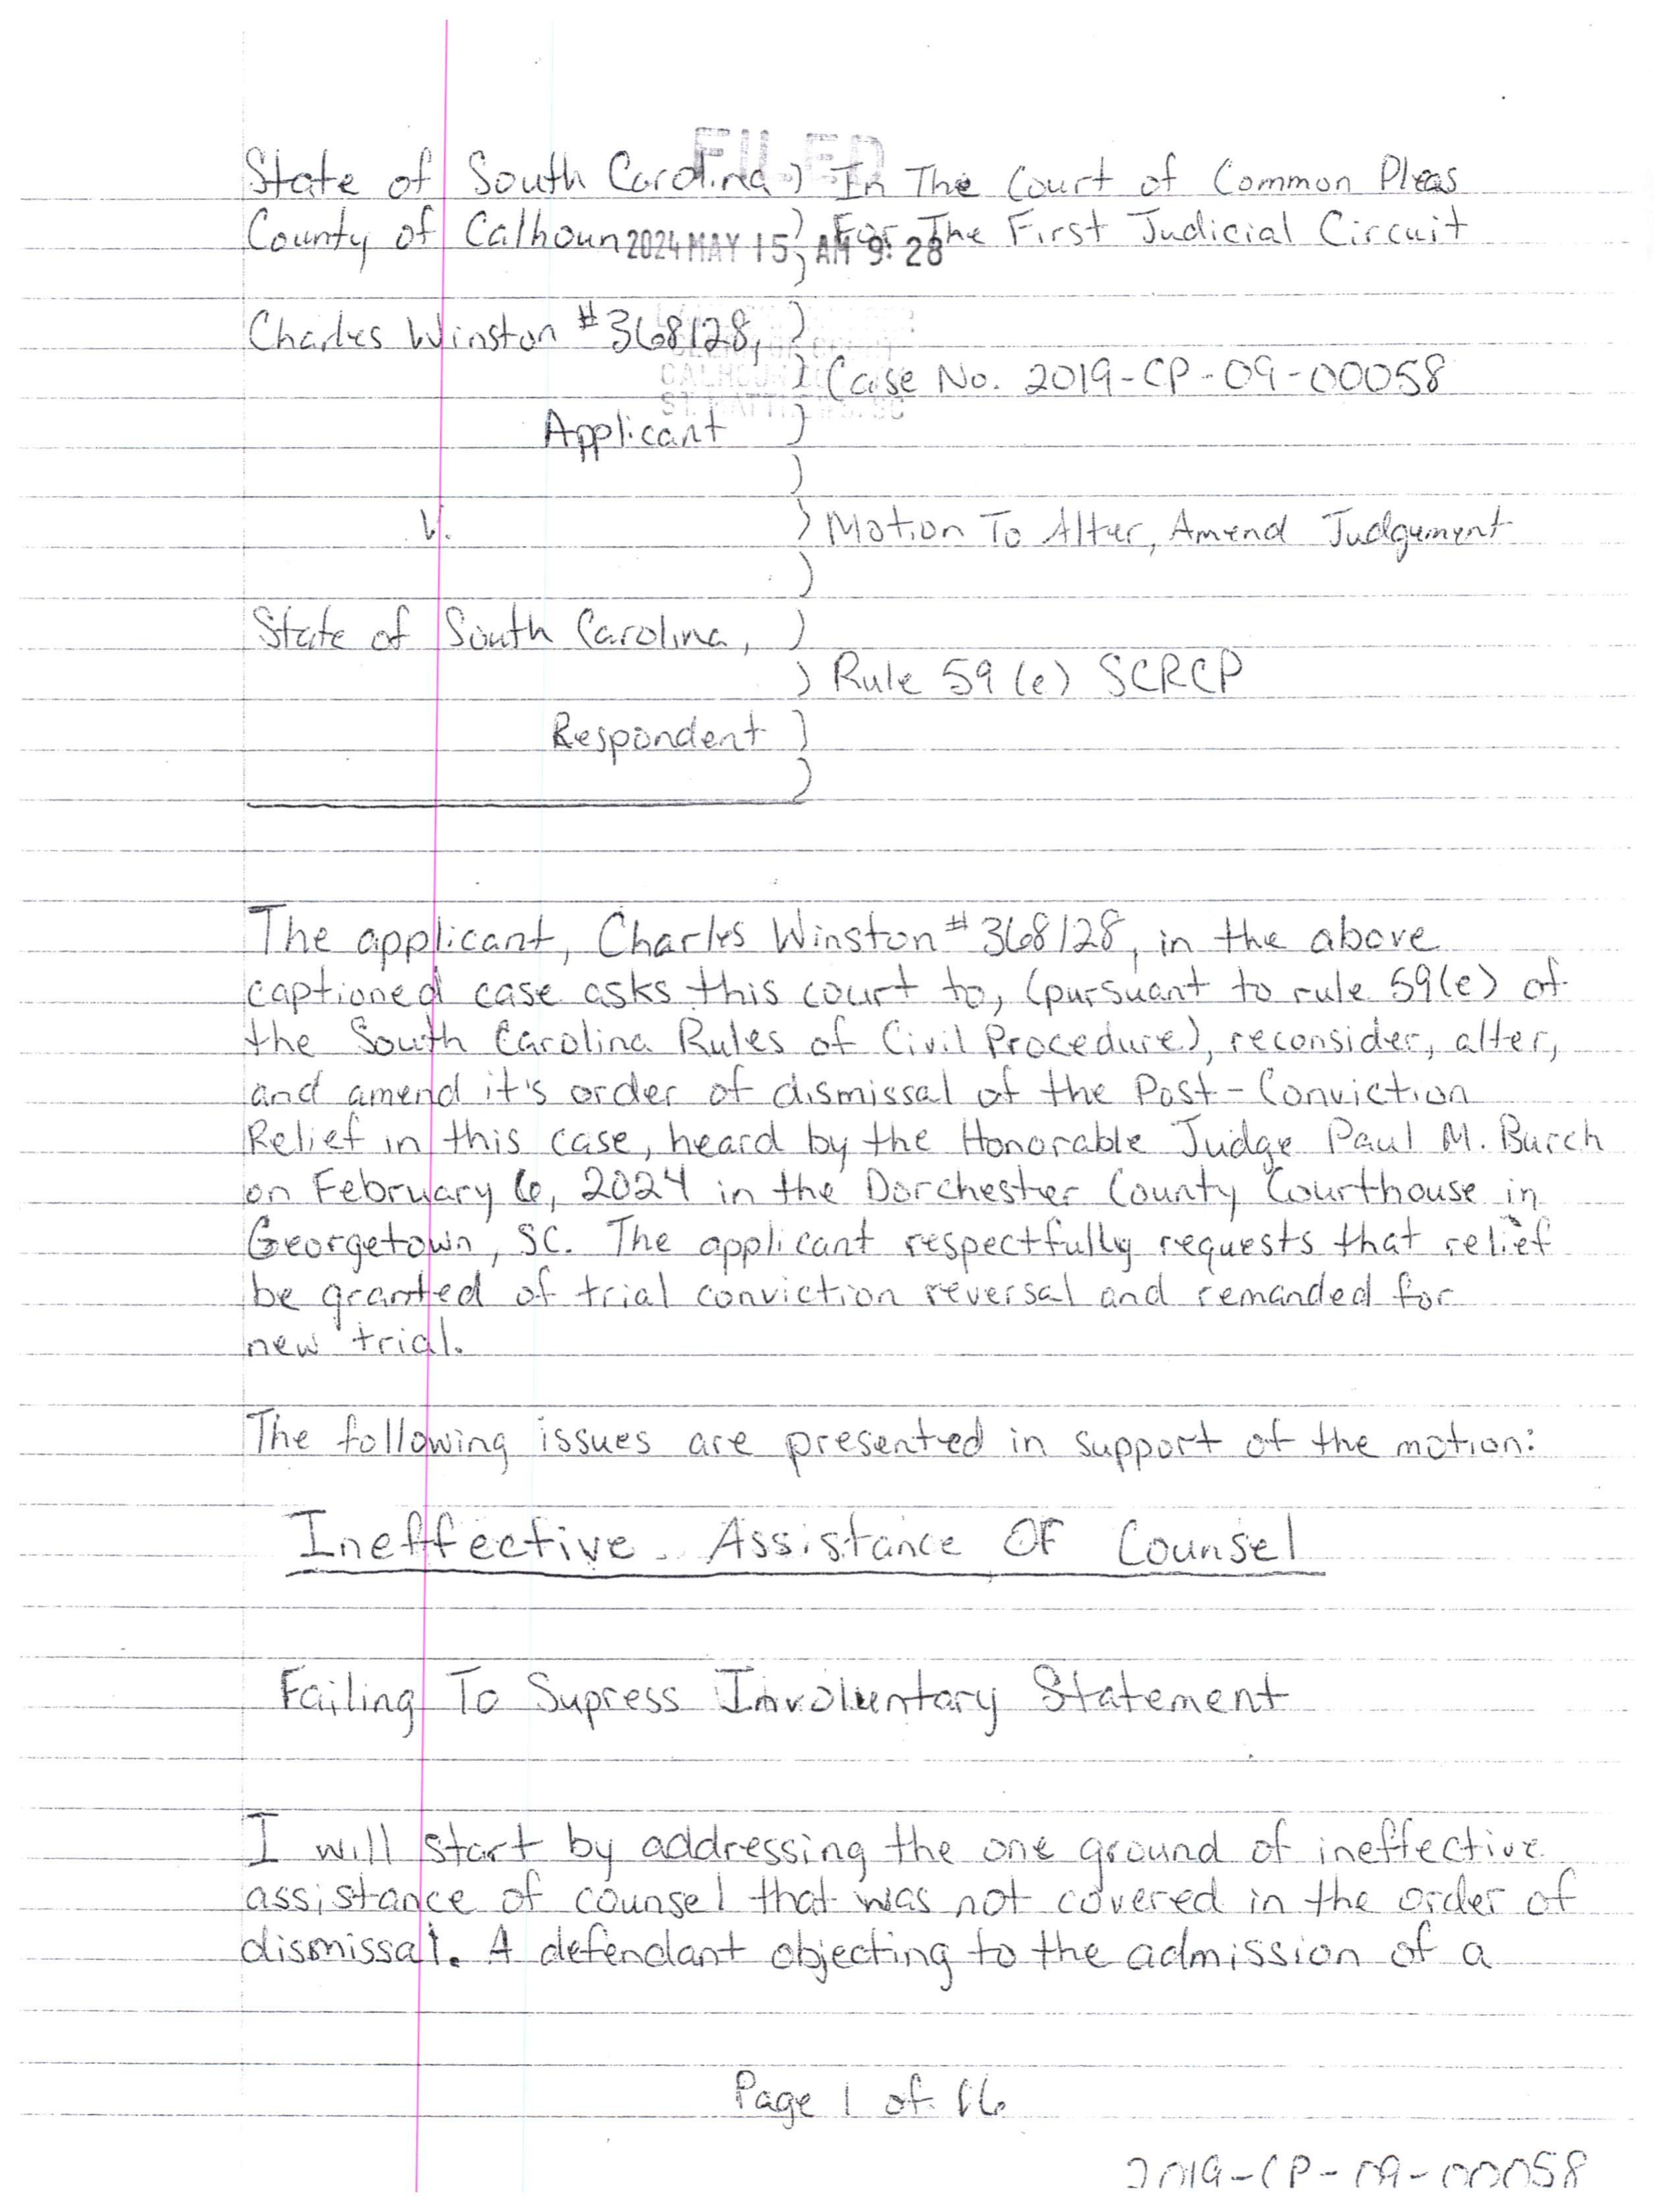 FILED
State of South Carolina ) In The Court of Common Pleas
County of Calhoun ) For The First Judicial Circuit
2024 MAY 15 AM 9: 28
)
Charles Winston #368128, )
) Case No. 2019-CP-09-00058
Applicant )
)
V. ) Motion To Alter, Amend Judgement
)
State of South Carolina, )
) Rule 59 (e) SCRCP
Respondent )
)
The applicant, Charles Winston #368128, in the above
captioned case asks this court to, (pursuant to rule 59(e) of
the South Carolina Rules of Civil Procedure), reconsider, alter,
and amend it's order of dismissal of the Post-Conviction
Relief in this case, heard by the Honorable Judge Paul M. Burch
on February 6, 2024 in the Dorchester County Courthouse in
Georgetown, SC. The applicant respectfully requests that relief
be granted of trial conviction reversal and remanded for
new trial.
The following issues are presented in support of the motion:
Ineffective Assistance OF Counsel
Failing To Supress Involuntary Statement
I will start by addressing the one ground of ineffective
assistance of counsel that was not covered in the order of
dismissal. A defendant objecting to the admission of a
Page 1 of 16
2019-CP-09-00058